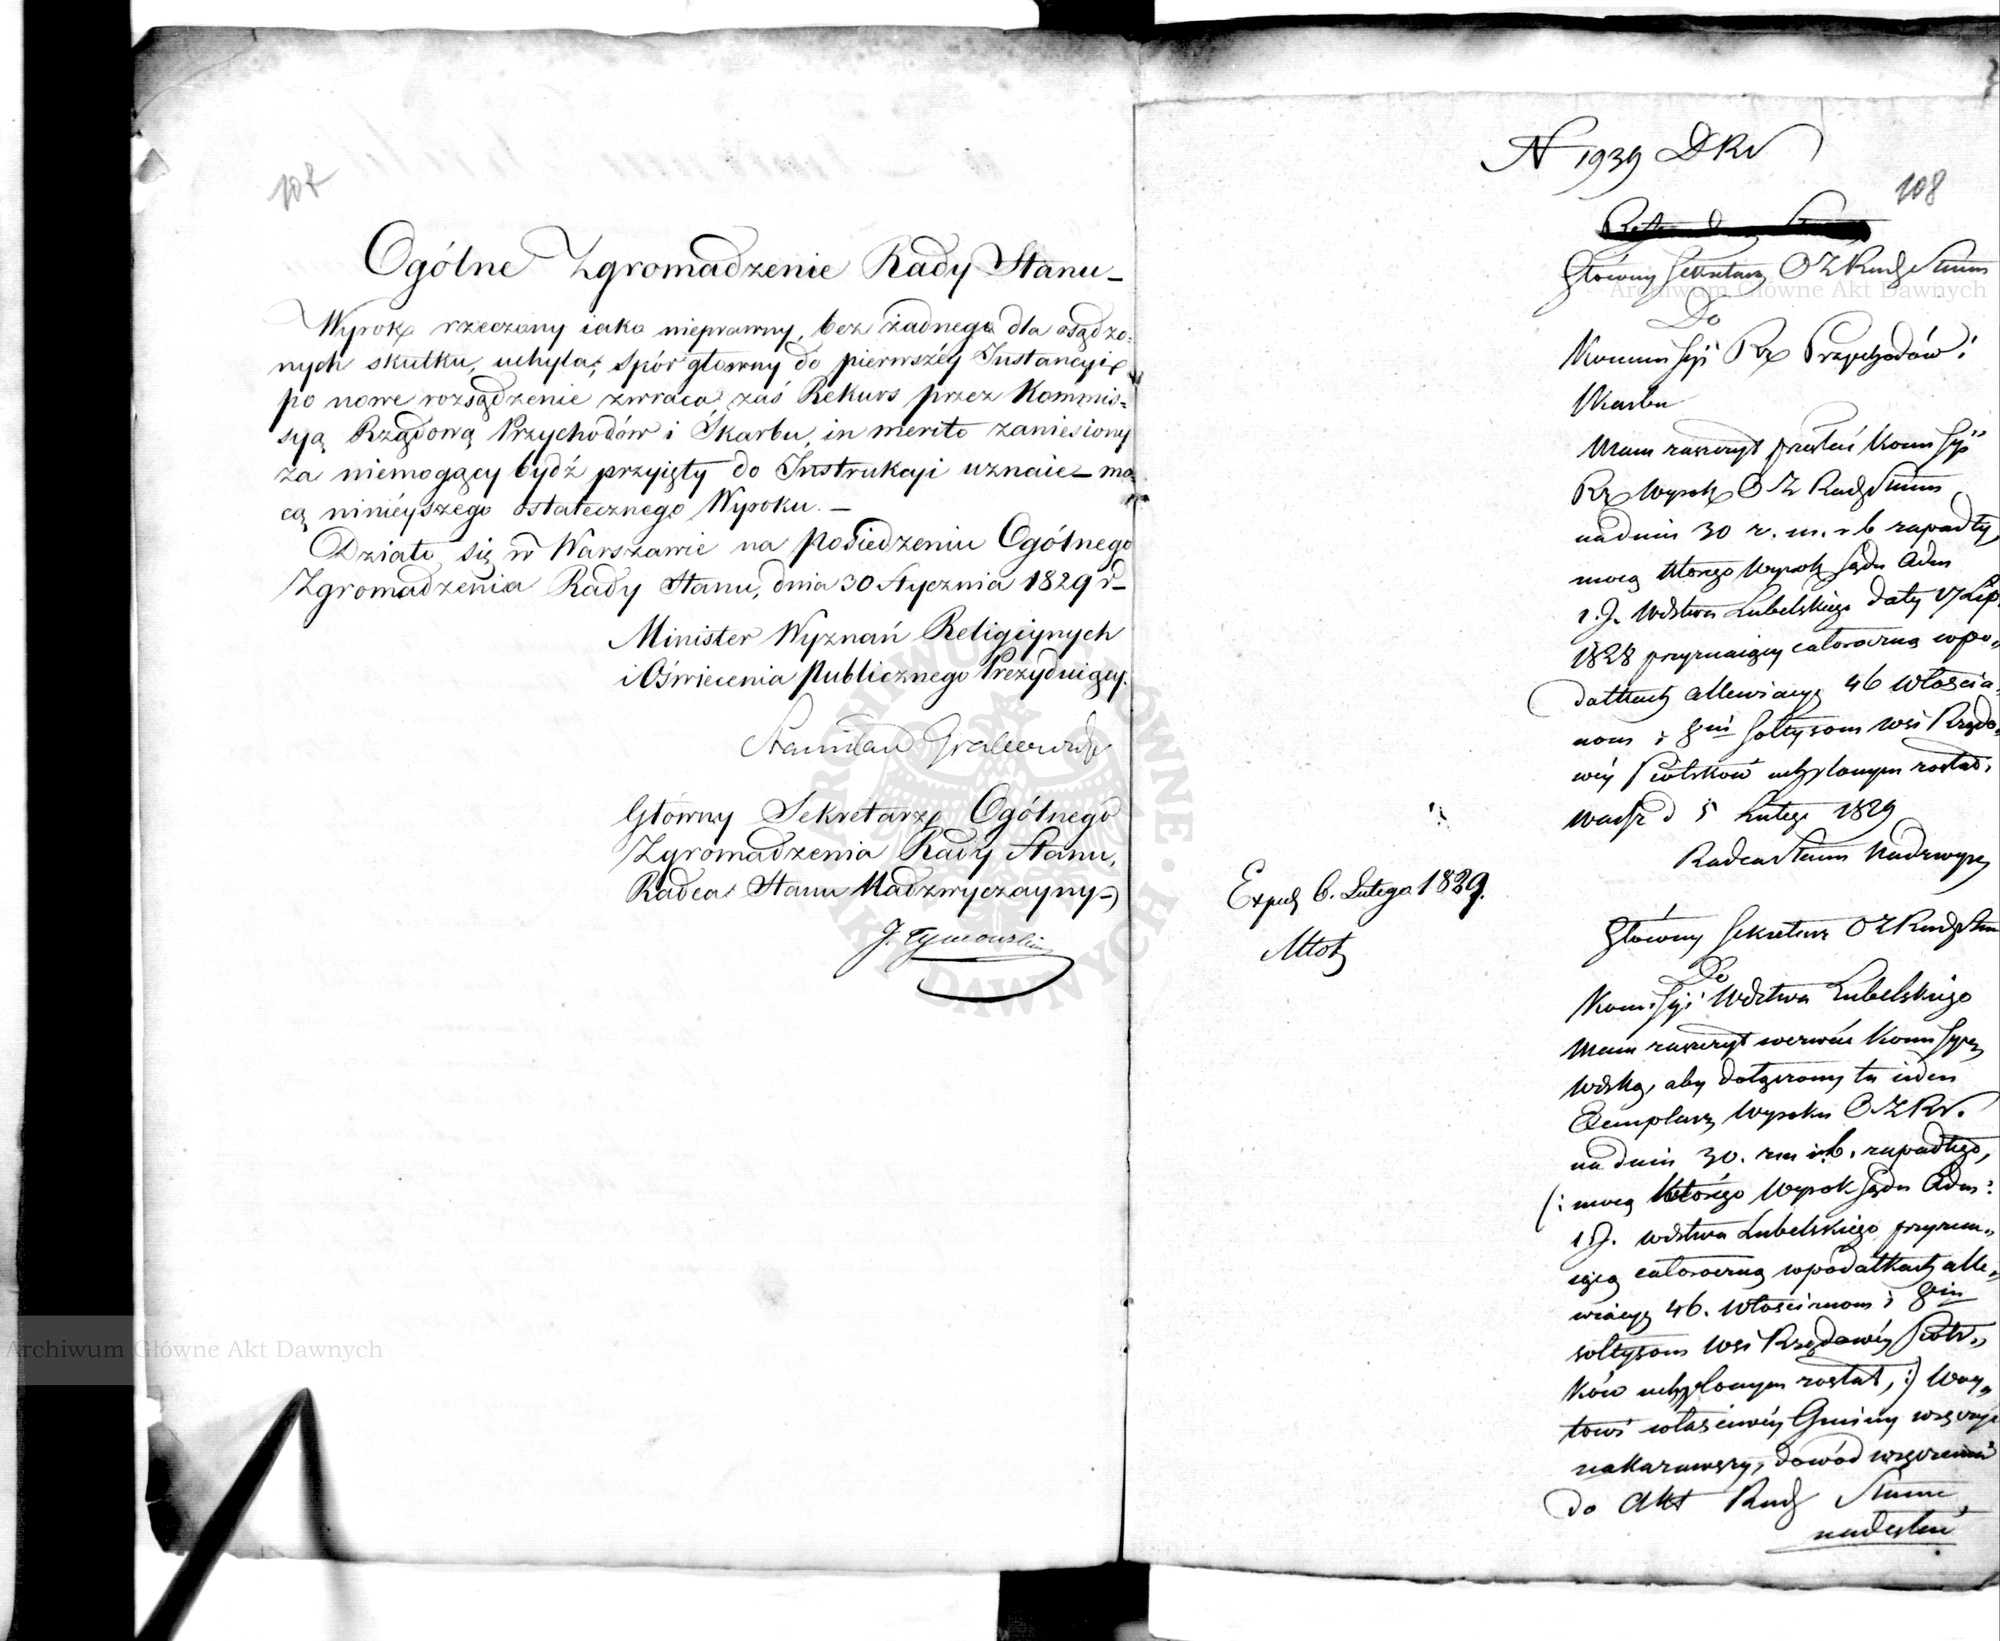 107
Ogólne Zgromadzenie Rady Stanu
Wyrok rzeczony iako nieprawny, bez żadnego dla osądzo=
nych skutku, uchyla; spór głowny do pierwszéy Instancyi
po nowe rozsądzenie zwraca zaś Rekurs przez Kommis=
syą Rządową Przychodów i Skarbu, in merito zaniesiony
za niemogący bydź przyięty do Instrukcyi uznaie – mo=
cą ninieyszego ostatecznego Wyroku. –
Działo się w Warszawie na posiedzeniu Ogólnego
Zgromadzenia Rady Stanu, dnia 30 Stycznia 1829 r –
Minister Wyznań Religiynych
i Oświecenia Publicznego Prezyduiący.
Stanisław Grabowski
Główny Sekretarz Ogólnego
Zgromadzenia Rady Stanu,
Radca Stanu Nadzwyczayny –
J. Tymowski
N 1939 DRS
108
Główny Sekretarz OZ Rady Stanu
Do
Kommissyi Rz Przychodów i
Skarbu
Mam zaszczyt przesłać Komissyi
Rz Wyrok OZ Rady Stanu
na dniu 30 z. m. r b zapadły
mocą którego wyrok Sądu Adm
i J. Wdztwa Lubelskiego daty 17 Lip.
1828 przyznaiący całoroczną w po=
datkach allewiacyą 46 włościa=
nom i 8miu sołtysom wsi Rządo=
wéy Siołków uchylonym został.
Warsz d 5 Lutego 1829
Radca Stanu Nadzwycz
Exped 6. Lutego 1829.
Główny Sekretarz OZ Rady Stanu
Do
Komissyi Wdztwa Lubelskiego
Mam zaszczyt wezwać Komissyą
Wdzką, aby dołączony tu ieden
Exemplarz Wyroku OZRS.
na dniu 30. zm i rb. zapadłego,
(: mocą którego Wyrok Sądu Adm:
i J. Wdztwa Lubelskiego przyzna=
iący całoroczną w podatkach alle=
wiacyą 46. Włościanom i 8miu
sołtysom wsi Rządowéy Sioł=
ków uchylonym został, :) Wóy=
towi właściwéy Gminy wręczyć
nakazawszy, dowód wręczenia
do Akt Rady Stanu
nadesłać
Archiwum Główne Akt Dawnych
Archiwum Główne Akt Dawnych
ARCHIWUM GŁÓWNE AKT DAWNYCH